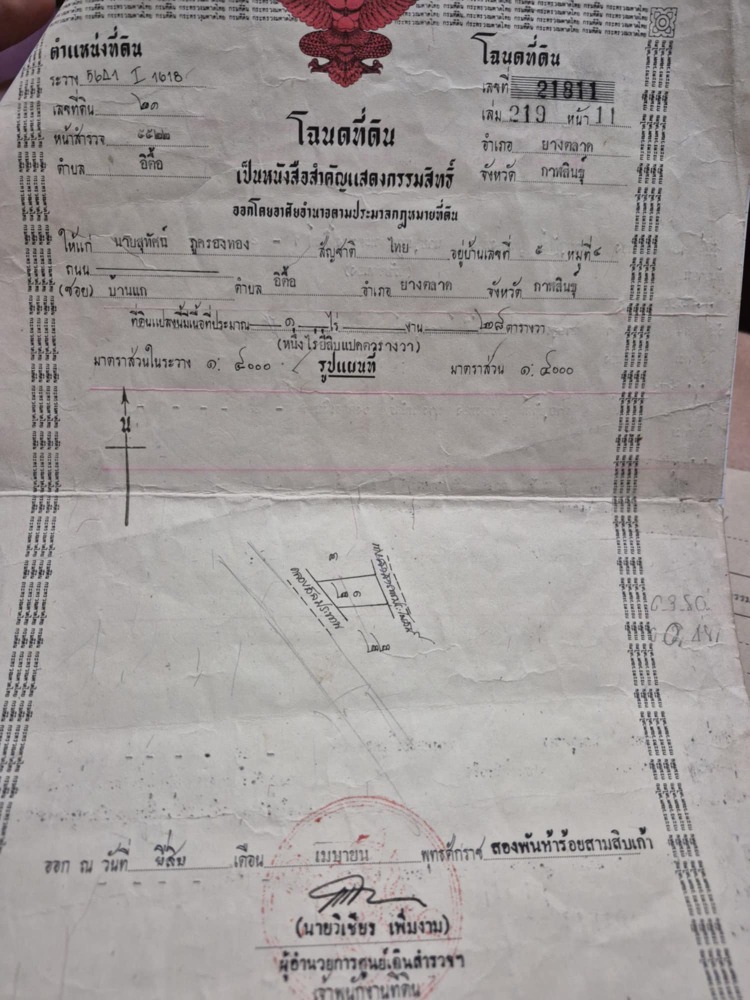 ตำแหน่งที่ดิน
ระวาง 5641 I 1618
เลขที่ดิน ๒๑
หน้าสำรวจ ๑๕๒๒
ตำบล อิตื้อ
โฉนดที่ดิน
เลขที่ 21811
เล่ม 219 หน้า 11
อำเภอ ยางตลาด
จังหวัด กาฬสินธุ์
โฉนดที่ดิน
เป็นหนังสือสำคัญแสดงกรรมสิทธิ์
ออกโดยอาศัยอำนาจตามประมวลกฎหมายที่ดิน
ให้แก่ นายสุทัศน์ ภูครองทอง สัญชาติ ไทย อยู่บ้านเลขที่ ๕ หมู่ที่ ๔
ถนน
(ซอย) บ้านแก ตำบล อิตื้อ อำเภอ ยางตลาด จังหวัด กาฬสินธุ์
ที่ดินแปลงนี้มีเนื้อที่ประมาณ ๑ ไร่ งาน ๒๘ ตารางวา
(หนึ่งไร่ยี่สิบแปดตารางวา)
มาตราส่วนในระวาง ๑: ๔๐๐๐ รูปแผนที่ มาตราส่วน ๑: ๔๐๐๐
น
คลองชลประทาน
๒๑
๒๒
ออก ณ วันที่ ยี่สิบ เดือน เมษายน พุทธศักราช สองพันห้าร้อยสามสิบเก้า
(นายวิเชียร เพิ่มงาม)
ผู้อำนวยการศูนย์เดินสำรวจฯ
เจ้าพนักงานที่ดิน